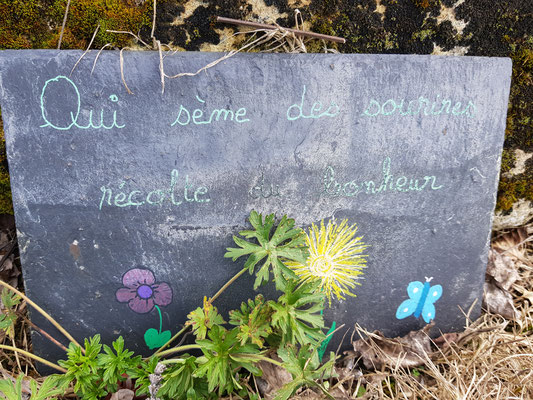 Qui sème des sourires
récolte du bonheur